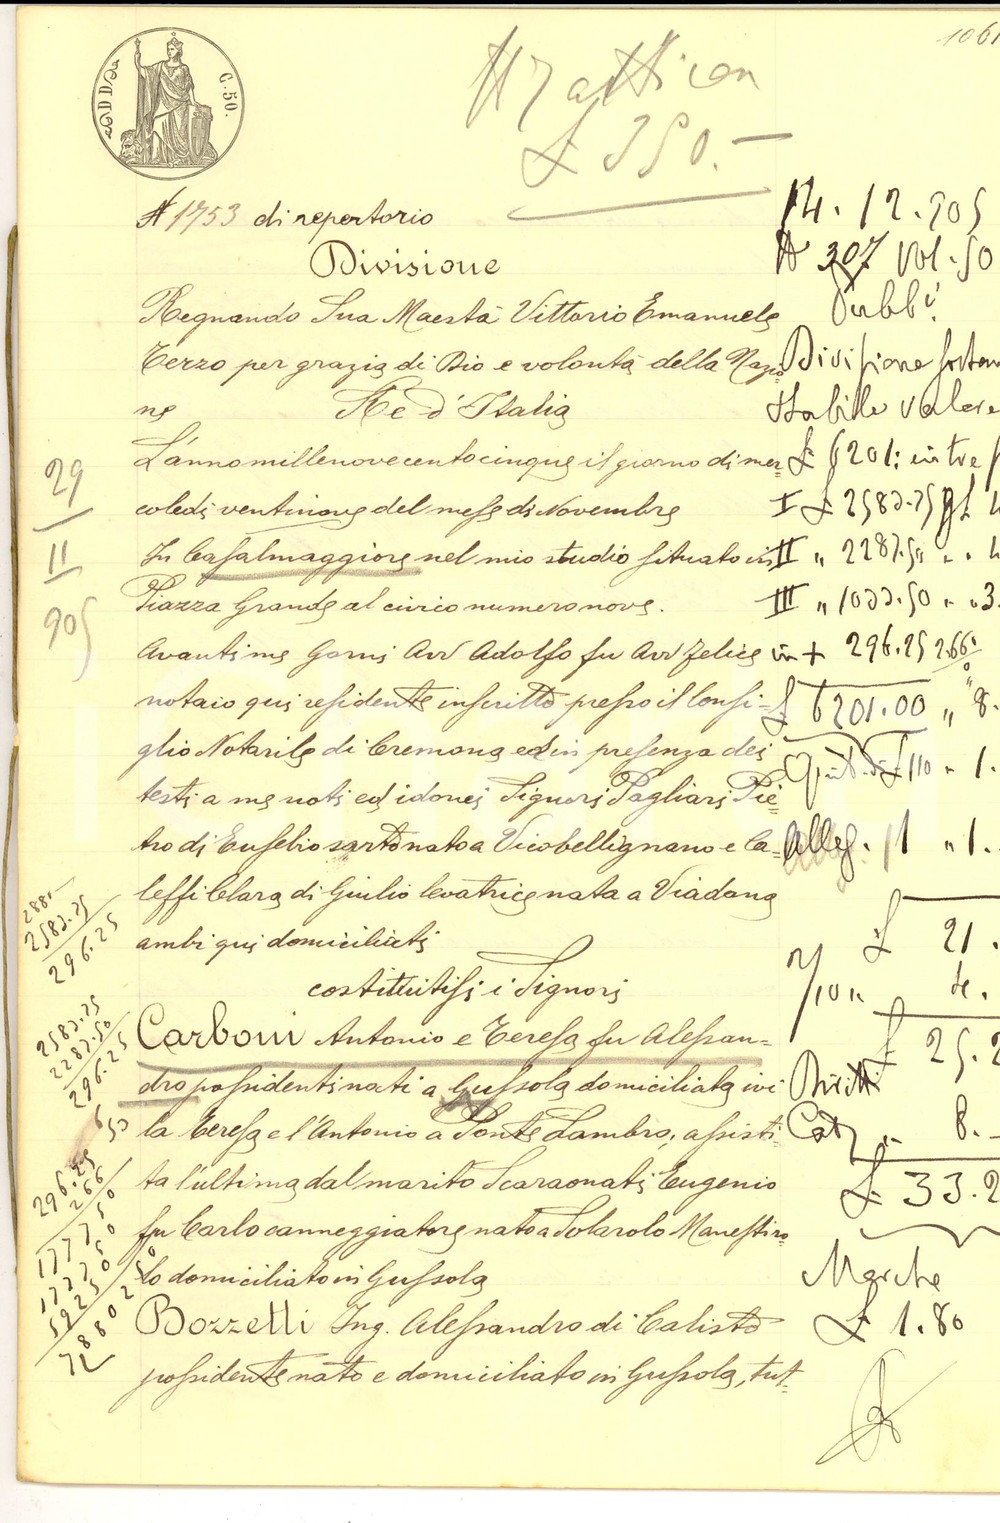 1061
C. 50.
£ 350.—
N 1753 di repertorio
Divisione
Regnando Sua Maestà Vittorio Emanuele
Terzo per grazia di Dio e volontà della Nazio-
ne Re d'Italia
L'anno millenovecentocinque il giorno di mer-
coledi ventinove del mese di Novembre
In Casalmaggiore nel mio studio situato in
Piazza Grande al civico numero nove.
Avanti me Gorni Avv Adolfo fu Avv Felice
notaio qui residente inscritto presso il Consi-
glio Notarile di Cremona ed in presenza dei
testi a me noti ed idonei Signori Pagliari Pie-
tro di Eusebio sarto nato a Vicobellignano e Ca-
leffi Clara di Giulio levatrice nata a Viadana
ambi qui domiciliati
costituitisi i Signori
Carboni Antonio e Teresa fu Alessan-
dro possidenti nati a Gussola domiciliata ivi
la Teresa e l'Antonio a Ponte Lambro, assisti-
ta l'ultima dal marito Scaraonati Eugenio
fu Carlo canneggiatore nato a Solarolo Monestiro-
lo domiciliato in Gussola
Bozzetti Ing. Alessandro di Calisto
possidente nato e domiciliato in Gussola, tut-
29
II
905
2583.25
296.25
2583.25
2287.50
296.25
296.25
266
177750
177750
59250
7880250
14.12.905
N 307 Vol. 50
Pubbi.
Divisione
Stabile valore
£ 6201: in tre
I £ 2583.75
II „ 2287.50
III „ 1033.50 „ „ 3.
in + 296.25 2.66
£ 6201.00 „ 8.
„ 1.
Alleg. 11 „ 1.
£ 21.
2/10 „ 4.
£ 25.2
Diritti
Cat „ 8.—
£ 33.2
Marche
£ 1.80